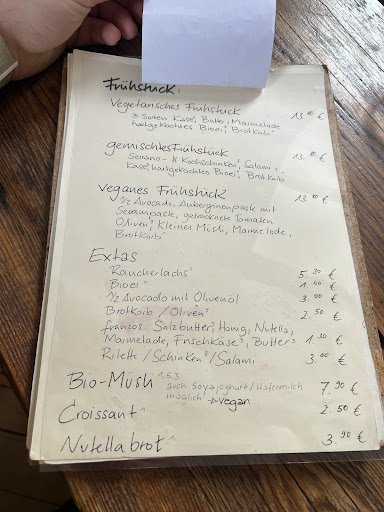 Frühstück
Vegetarisches Frühstück
3 Sorten Käse, Butter, Marmelade 13.00 €
hartgekochtes Bioei, Brotkorb
gemischtes Frühstück
Serrano- & Kochschinken, Salami, 13.00 €
Käse, hartgekochtes Bioei, Brotkorb
Veganes Frühstück
1/2 Avocado, Auberginenpaste mit 13.00 €
Sesampaste, getrocknete Tomaten
Oliven, kleiner Müsli, Marmelade,
Brotkorb
Extas
Räucherlachs 5.50 €
Bioei 1.40 €
1/2 Avocado mit Olivenöl €
Brotkorb / Oliven 2.50 €
französ. Salzbutter, Honig, Nutella,
Marmelade, Frischkäse, Butter €
Rilette / Schinken / Salami 3.00 €
Bio-Müsli 1.5.3 7.90 €
auch Soyajoghurt / Hafermilch
möglich → vegan
Croissant 2.50 €
Nutellabrot 3.90 €